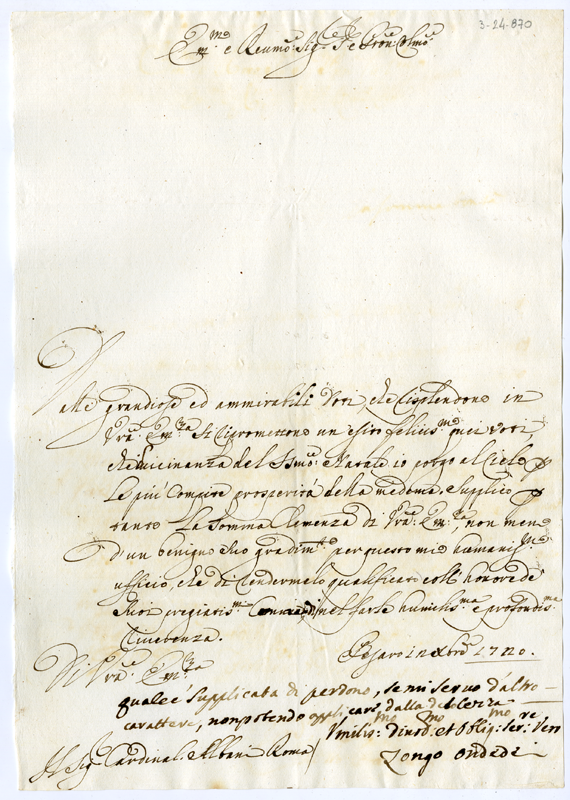 3-24-870
Em.mo e Reumo: Sig.re e Pron Colmo
Dalle grandiose ed ammirabili doti, che risplendono in
Vra Em.za si ripromettono un esito felicis.mo quei voti
che in vicinanza del Ssmo: Natale io porgo al Cielo p
le piú compite prosperitá della medema. Supplico p
tanto la somma Clemenza di Vra Em.za, non meno
d'un benigno suo gradim.to per questo mio humaniss.mo
ufficio, che di rendermelo qualificato coll' honore de
suoi pregiatis.mi mentre farle humilis.ma e profondis.ma
riverenza.
Pesaro in Xbre 1720.
Di Vra Em.za
quale é supplicata di perdono, se mi servo d'altro
carattere, non potendo applicare dalla debolezza
Vmilis.mo: Divo.mo et Oblig.mo: ser.re: Vero
Zongo Ondedei
Al Sig. Cardinal. Albani Roma